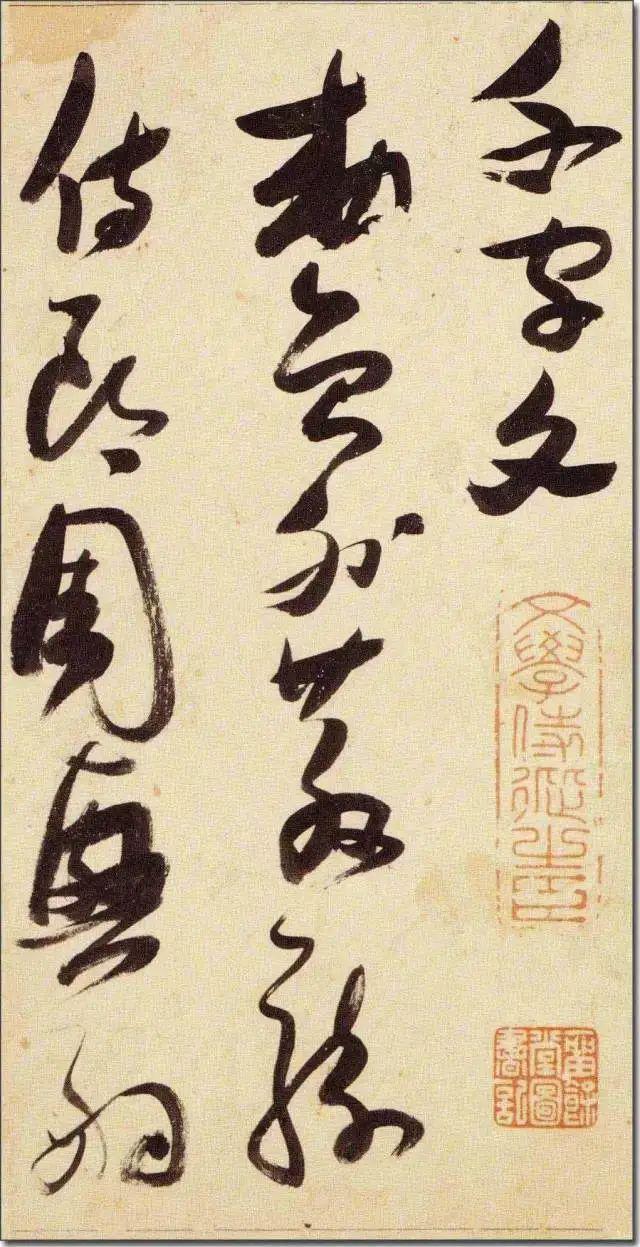 千字文
勅員外散騎
侍郎周興嗣
文學侍從之臣